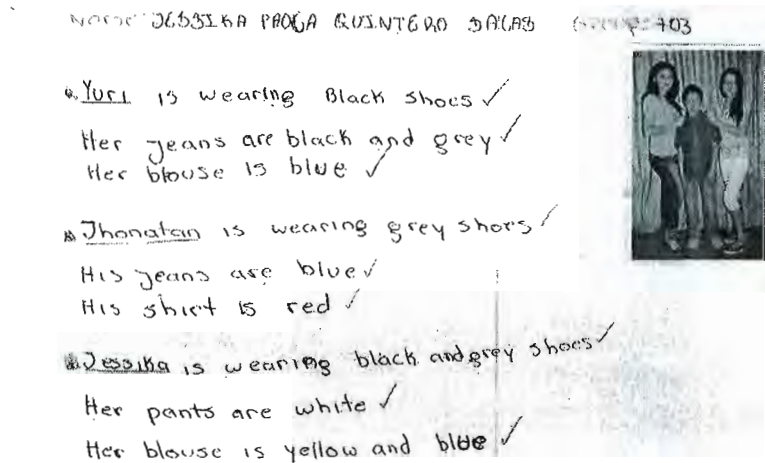 Name JESSIKA PAOLA QUINTERO SALAS Group: 703
Yuri is wearing Black shoes ✓
Her jeans are black and grey ✓
Her blouse is blue ✓
Jhonatan is wearing grey shoes ✓
His jeans are blue ✓
His shirt is red ✓
Jessika is wearing black and grey shoes ✓
Her pants are white ✓
Her blouse is yellow and blue ✓